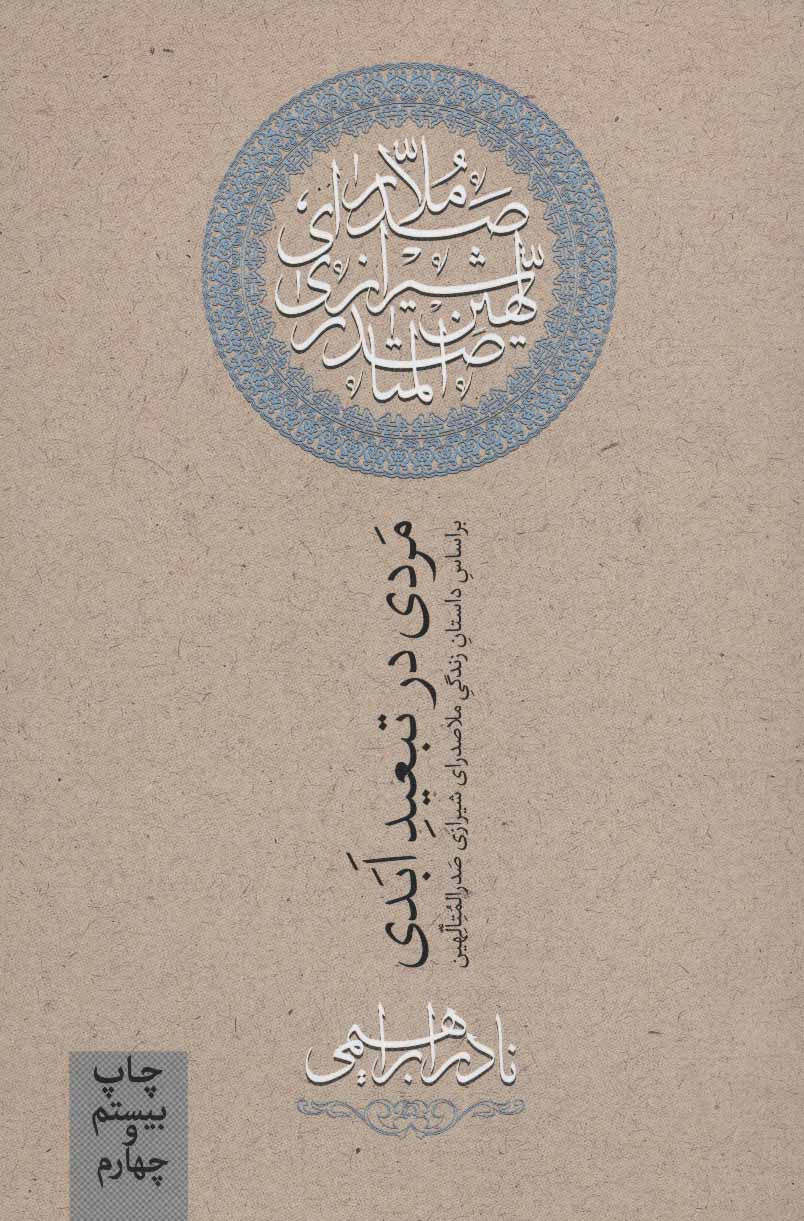 مُلّا
صَدرای،
شیرازی
صَدرالمتألّهین
مَردی در تبعیدِ اَبَدی
براساسِ داستانِ زندگیِ ملاصدرای شیرازی صَدرالمُتِالّهین
نادر ابراهیمی
چاپ
بیستم
و
چهارم